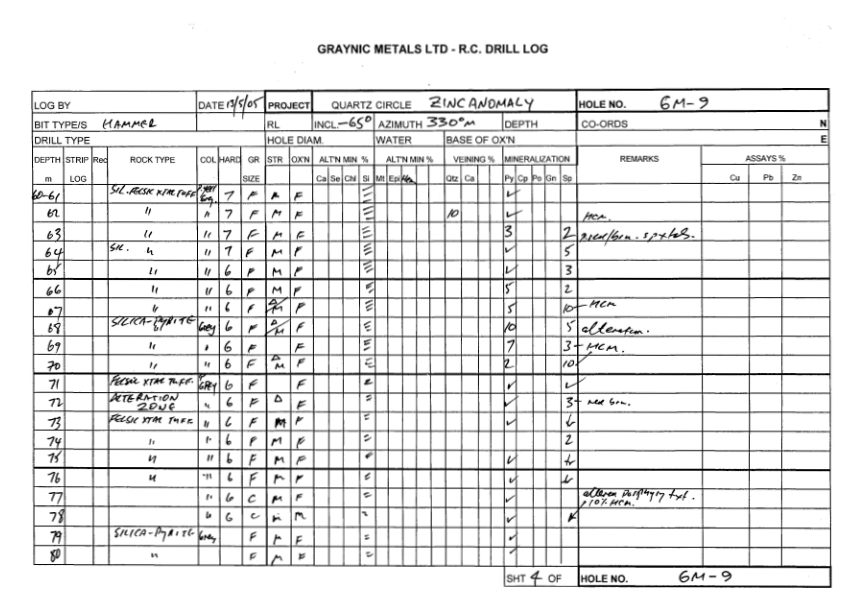 GRAYNIC METALS LTD - R.C. DRILL LOG
LOG BY DATE 13/5/05 PROJECT QUARTZ CIRCLE ZINC ANOMALY HOLE NO. GM-9
BIT TYPE/S HAMMER RL INCL. -65° AZIMUTH 330°M DEPTH CO-ORDS N
DRILL TYPE HOLE DIAM. WATER BASE OF OX'N E
DEPTH STRIP Rec ROCK TYPE COL HARD GR STR OX'N ALT'N MIN % ALT'N MIN % VEINING % MINERALIZATION REMARKS ASSAYS %
m LOG SIZE Ca Se Chl Si Mt Epi Hem Qtz Ca Py Cp Po Gn Sp Cu Pb Zn
60-61 SIL. FELSIC XTAL TUFF 7 F F ✓
62 " " 7 F M F 10 ✓ HCM.
63 " " 7 F M F 3 2
64 SIL. " " 7 F M F ✓ 5
65 " " 6 F M F ✓ 3
66 " " 6 F M F 5 2
67 " " 6 F Δ/M F 5 10 - HCM
68 SILICA-PYRITE Grey 6 F Δ/M F 10 5 alteration.
69 " " 6 F F 7 3 - HCM.
70 " " 6 F Δ M F 2 10
71 FELSIC XTAL TUFF. GREY 6 F F ✓ ✓
72 ALTERATION ZONE " 6 F Δ F ✓ 3 -
73 FELSIC XTAL TUFF " 6 F M F ✓
74 " " 6 F M F 2
75 " " 6 F M F ✓
76 " " 6 F M F ✓
77 " 6 C M F ✓ porphyry txt.
10% HCM.
78 6 C M ✓
79 SILICA-PYRITE Grey F F ✓
80 " F ✓
SHT 4 OF HOLE NO. GM-9